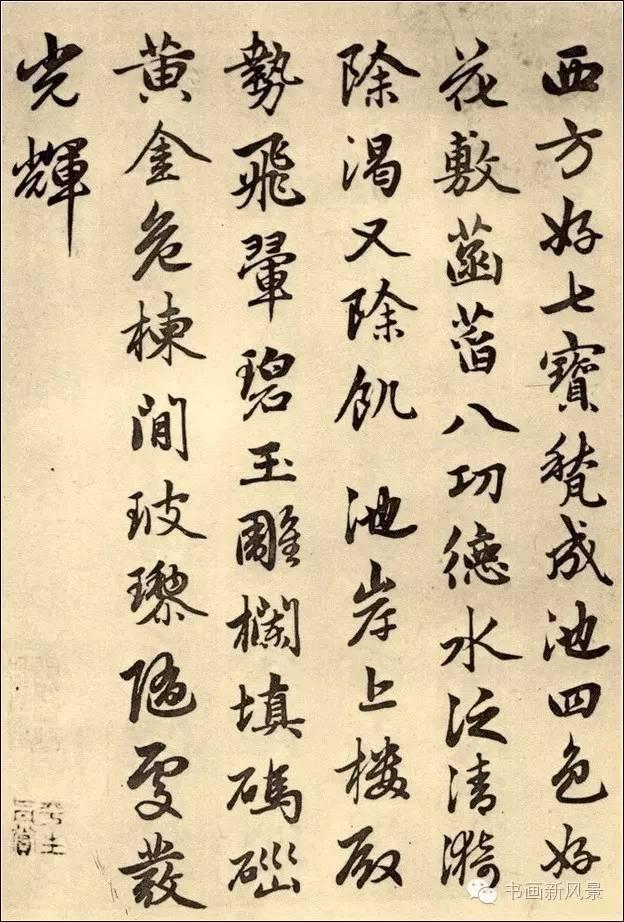 西方好七寶甃成池四色好
花敷菡萏八功德水泛清漪
除渴又除飢 池岸上樓殿
勢飛翬碧玉雕欄填碼碯
黃金危棟間玻瓈隨處發
光輝
书画新风景